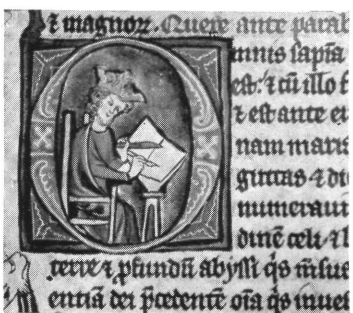 ⁊ magnoꝝ. Quere ante parab
mnis sapīa
est. ⁊ cū illo f
⁊ est ante eu
nam maris
guttas ⁊ die
numerauit
dinē celi ⁊ l
terre ⁊ ꝓfundū abyssi q̇s m̄sus
entiā dei p̄cedentē oīa q̇s inuest